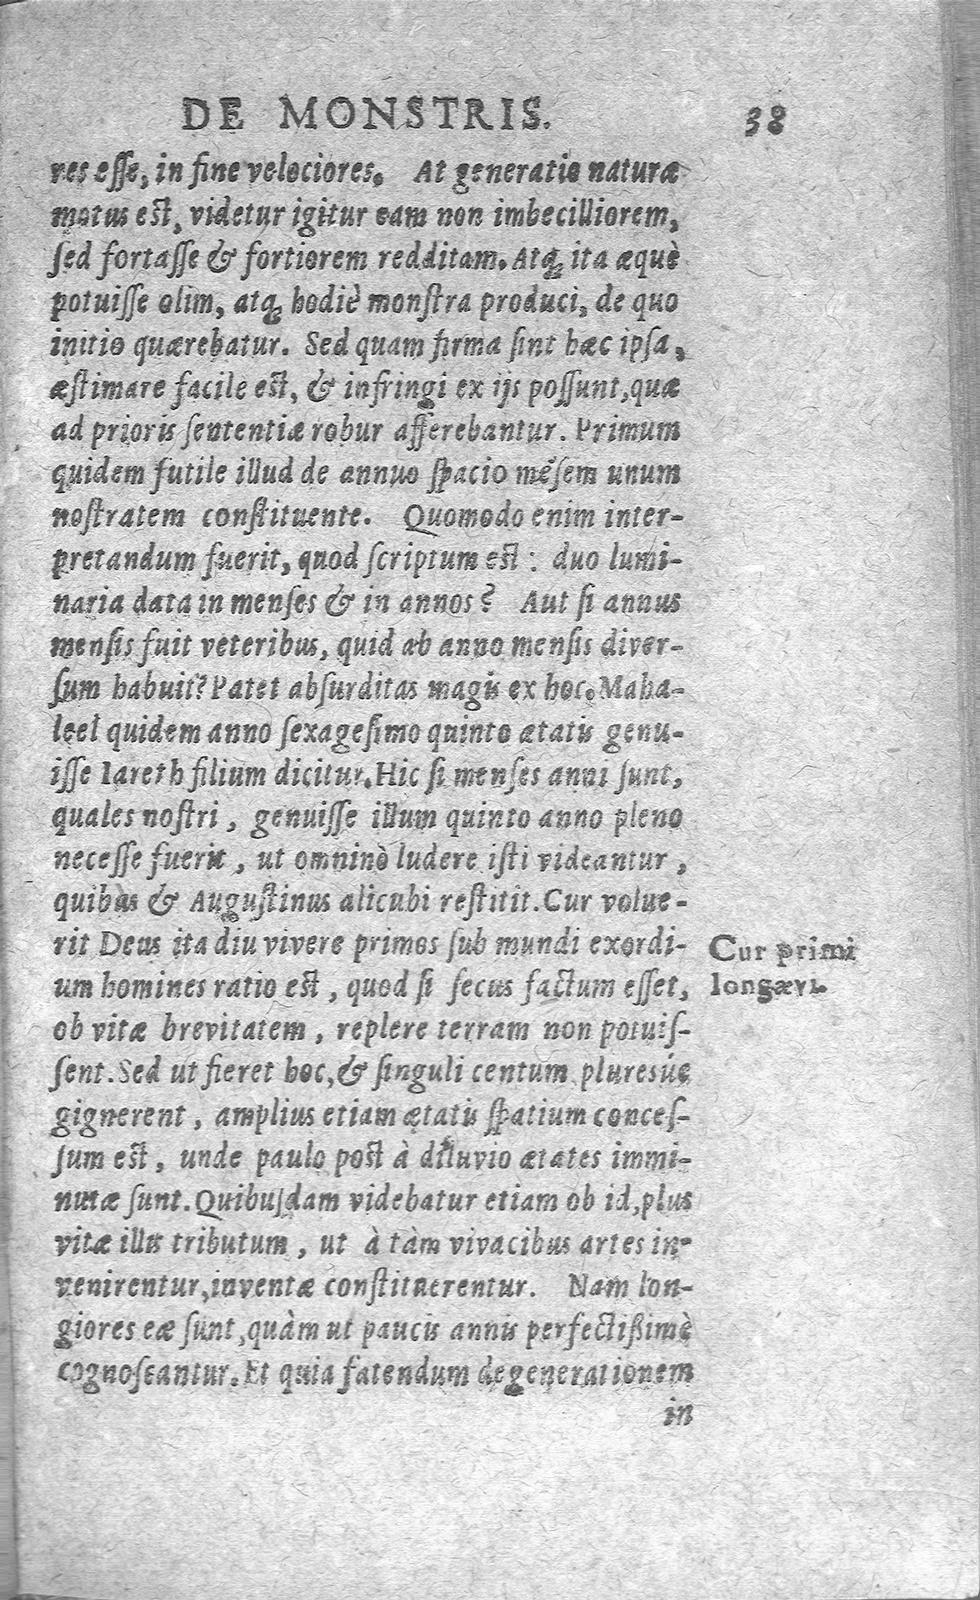 DE MONSTRIS. 38
res esse, in fine velociores. At generatio naturæ
motus est, videtur igitur eam non imbecilliorem,
sed fortasse & fortiorem redditam. Atq; ita æquè
potuisse olim, atq; hodiè monstra produci, de quo
initio quærebatur. Sed quam firma sint hæc ipsa,
æstimare facile est, & infringi ex ijs possunt, quæ
ad prioris sententiæ robur afferebantur. Primum
quidem futile illud de annuo spacio mẽsem unum
nostratem constituente. Quomodo enim inter-
pretandum fuerit, quod scriptum est: duo lumi-
naria data in menses & in annos? Aut si annus
mensis fuit veteribus, quid ab anno mensis diver-
sum habuit? Patet absurditas magis ex hoc. Maha-
leel quidem anno sexagesimo quinto ætatis genu-
isse Iareth filium dicitur. Hic si menses anni sunt,
quales nostri, genuisse illum quinto anno pleno
necesse fuerit, ut omninò ludere isti videantur,
quibus & Augustinus alicubi restitit. Cur volue-
rit Deus ita diu vivere primos sub mundi exordi-
um homines ratio est, quod si secus factum esset,
ob vitæ brevitatem, replere terram non potuis-
sent. Sed ut fieret hoc, & singuli centum pluresúe
gignerent, amplius etiam ætatis spatium conces-
sum est, unde paulo post à diluvio ætates immi-
nutæ sunt. Quibusdam videbatur etiam ob id, plus
vitæ illis tributum, ut à tàm vivacibus artes in-
venirentur, inventæ constituerentur. Nam lon-
giores eæ sunt, quàm ut paucis annis perfectißimè
cognoscantur. Et quia fatendum degenerationem
in
Cur primi
longævi.